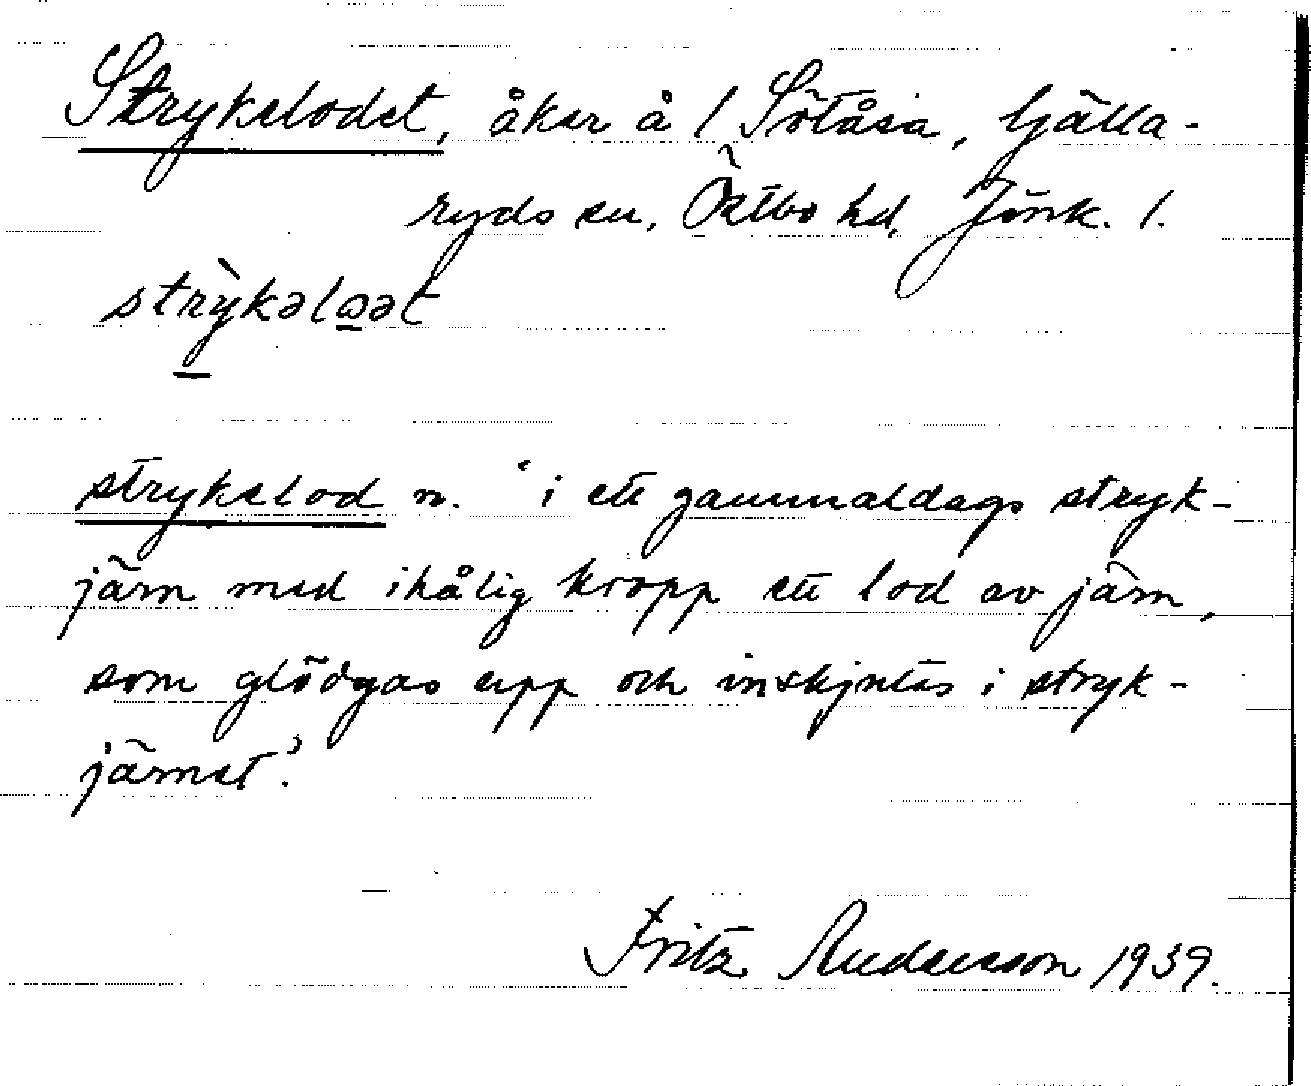 Strykelodet, åker å 1 Sötåsa, Gälla-
ryds sn, Östbo hd, Jönk. l.
strỳkəlɷət
strykelod n. ‘i ett gammaldags stryk-
järn med ihålig kropp ett lod av järn,
som glödgas upp och inskjutes i stryk-
järnet’.
Fritz Andersson 1939.